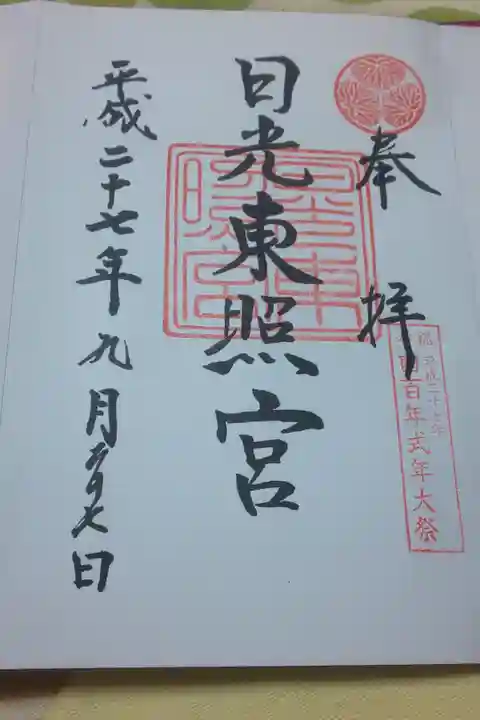 奉拝
平成二十七年
四百年式年大祭
日光東照宮
平成二十七年九月廿七日